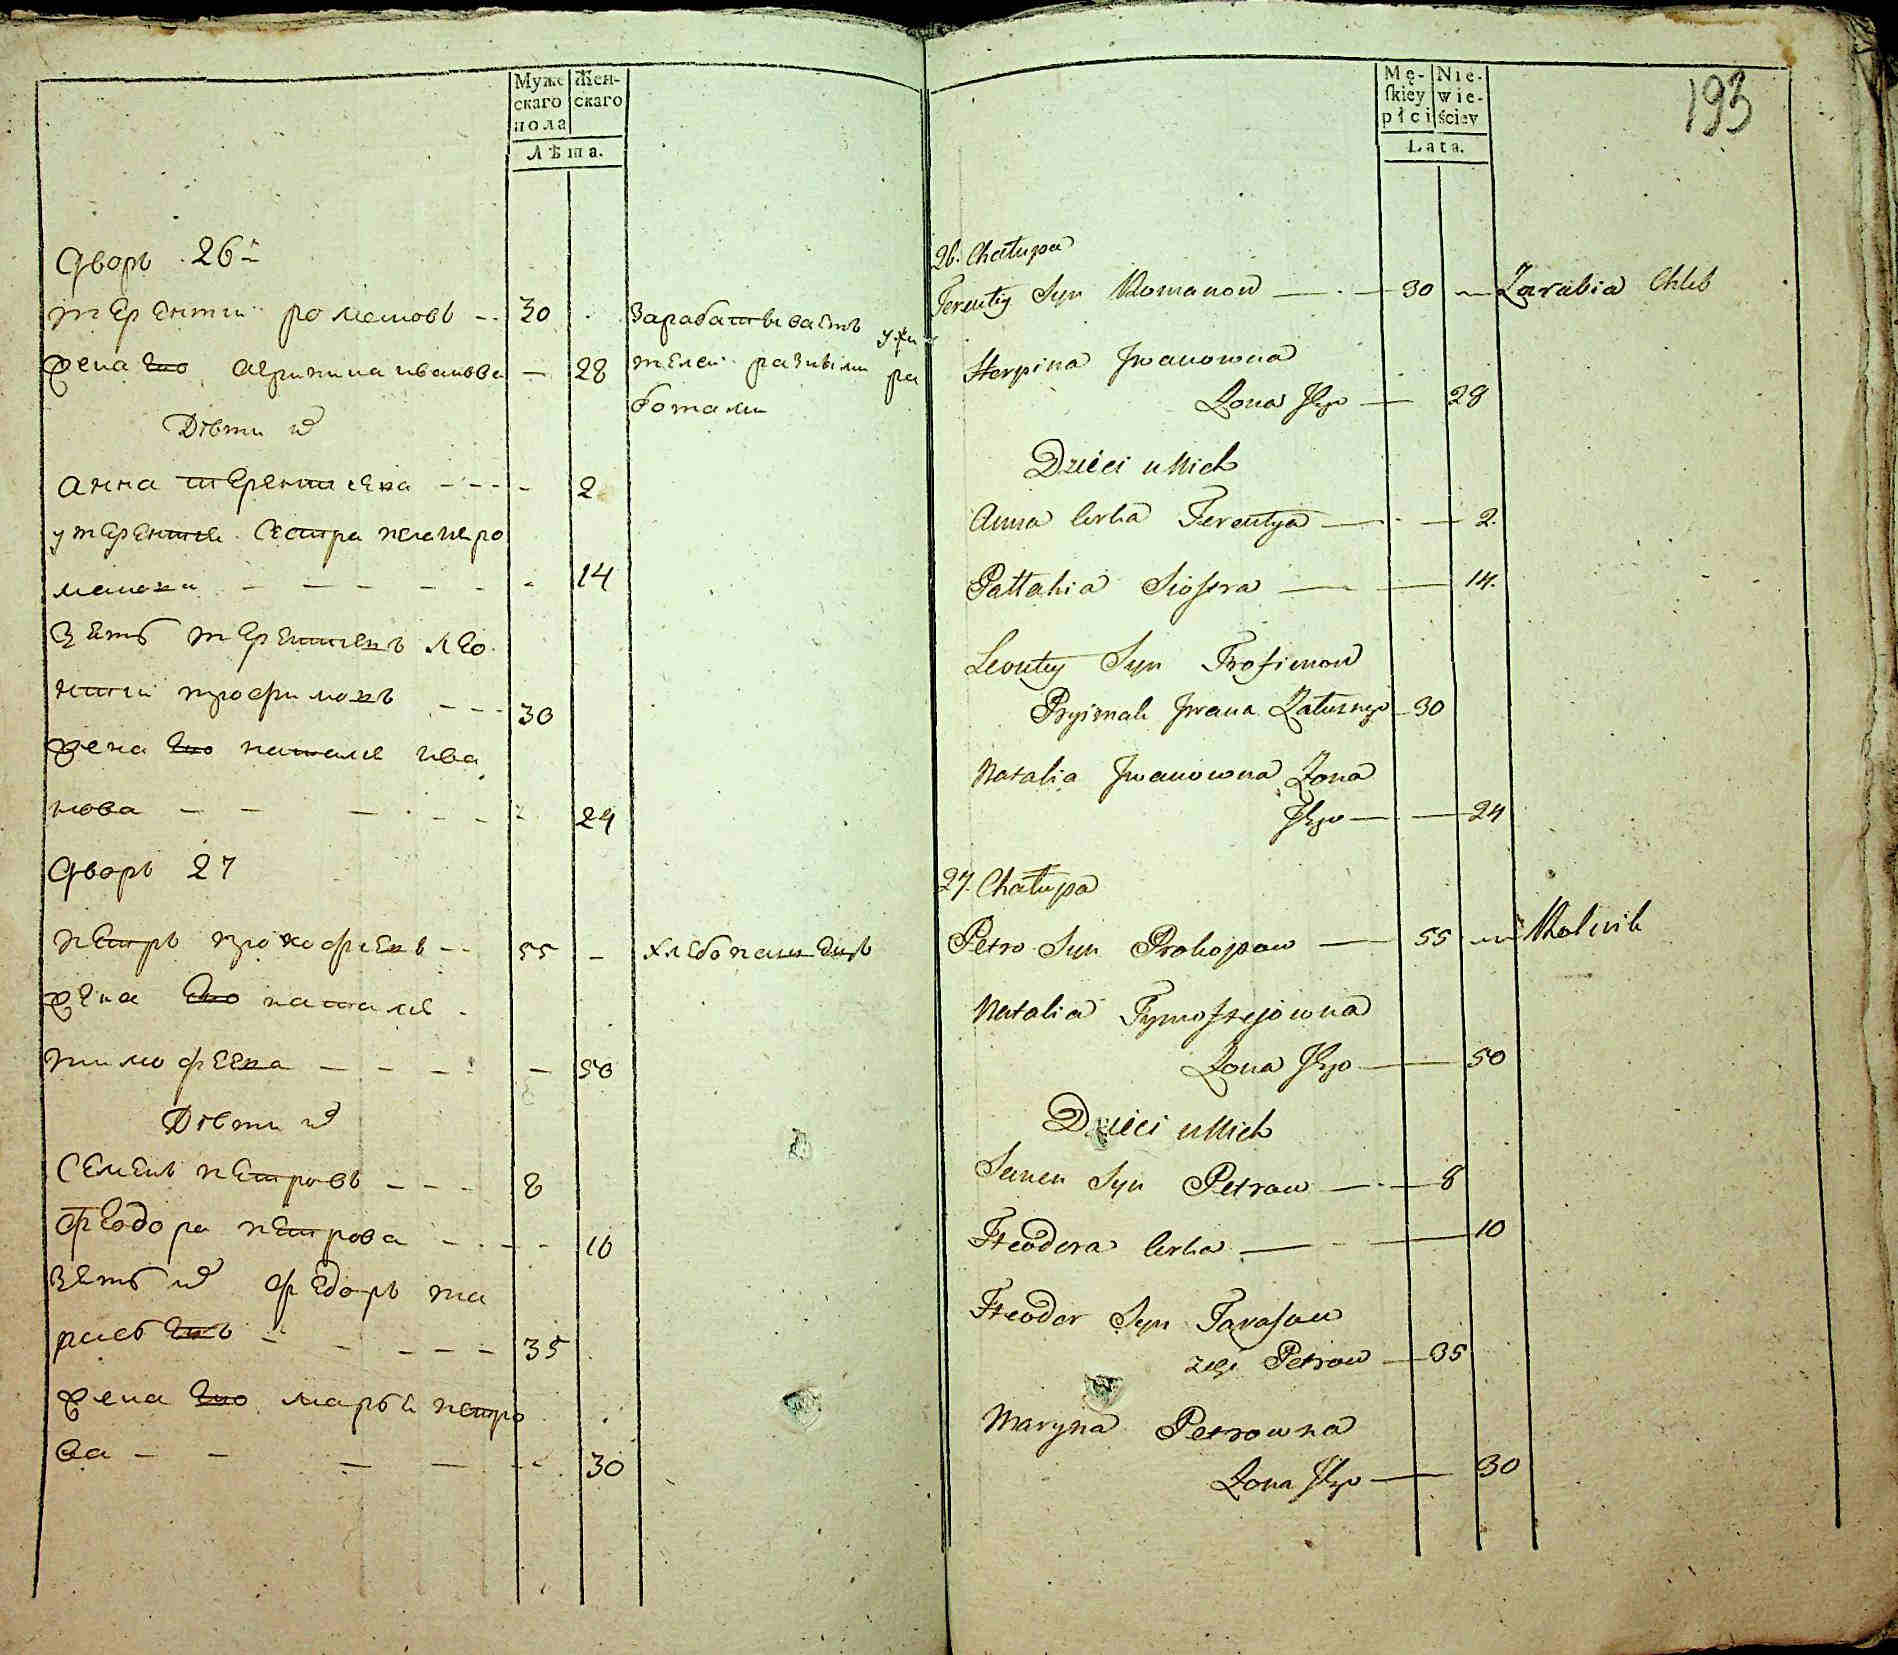 Муже
скаго
пола
Жен-
скаго
Лѣта.
Дворъ 26й
терентий романовъ 30
жена его агрипина иванова 28
зарабатываетъ у жи
телей разными ра
ботами
Дѣти их
анна терентиева 2
у терентия сестра пелагия ро
манова 14
зять терентиевъ лео
нтий трофимовъ 30
жена его наталия ива
нова 24
Дворъ 27
петръ прокофиевъ 55
хлебопашецъ
жена его наталия
тимофеева 50
Дѣти их
семенъ петровъ 8
феодора петрова 10
зять их федоръ та
расьевъ 35
жена его марья петро
ва 30
Mę-
skiey
płci
Nie-
wie-
ściey
Lata.
193
26. Chałupa
Terenty Syn Romanow 30 Zarabia Chleb
Herpina Iwanowna
Zona Jego 28
Dzieci u Nich
Anna Corka Terentya 2.
Pallahia Siostra 14.
Leonty Syn Trofimow
Pryimak Iwana 30
Natalia Iwanowna Zona
Jego 24
27. Chałupa
Petro Syn Prokopow 55 Rolnik
Natalia Tymofiejowna
Zona Jego 50
Dzieci u Nich
Semen Syn Petrow 8
Fteodora Corka 10
Fteodor Syn Tarasow
Petrow 35
Maryna Petrowna
Zona Jego 30